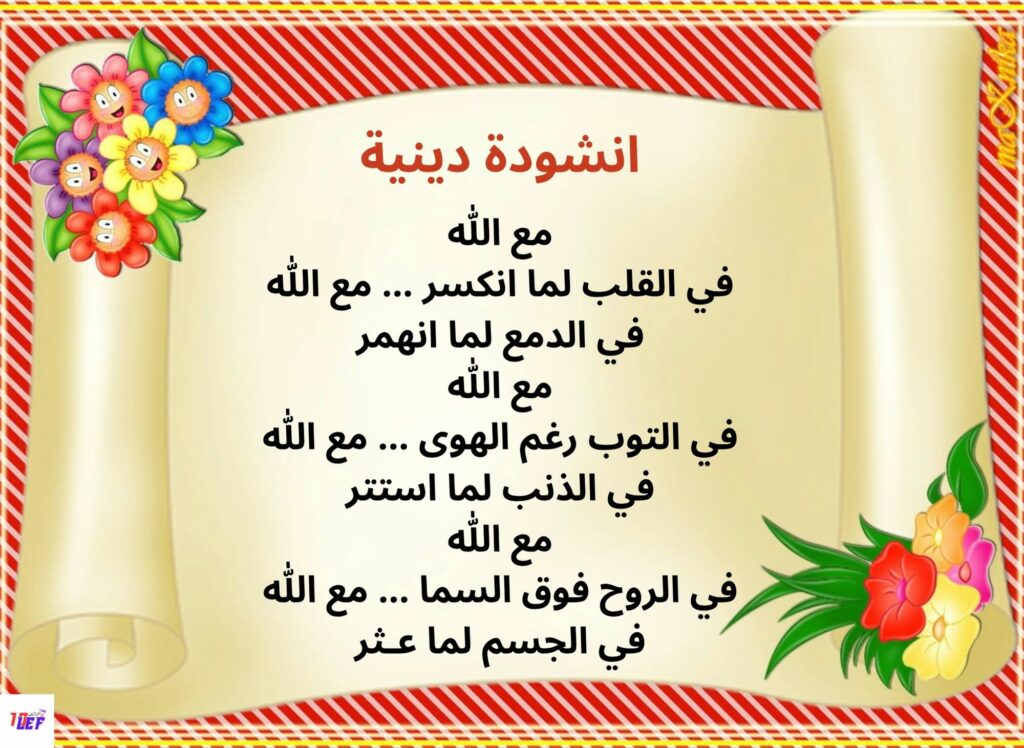 انشودة دينية
مع الله
في القلب لما انكسر ... مع الله
في الدمع لما انهمر
مع الله
في التوب رغم الهوى ... مع الله
في الذنب لما استتر
مع الله
في الروح فوق السما ... مع الله
في الجسم لما عـثر
maXnika
LEF